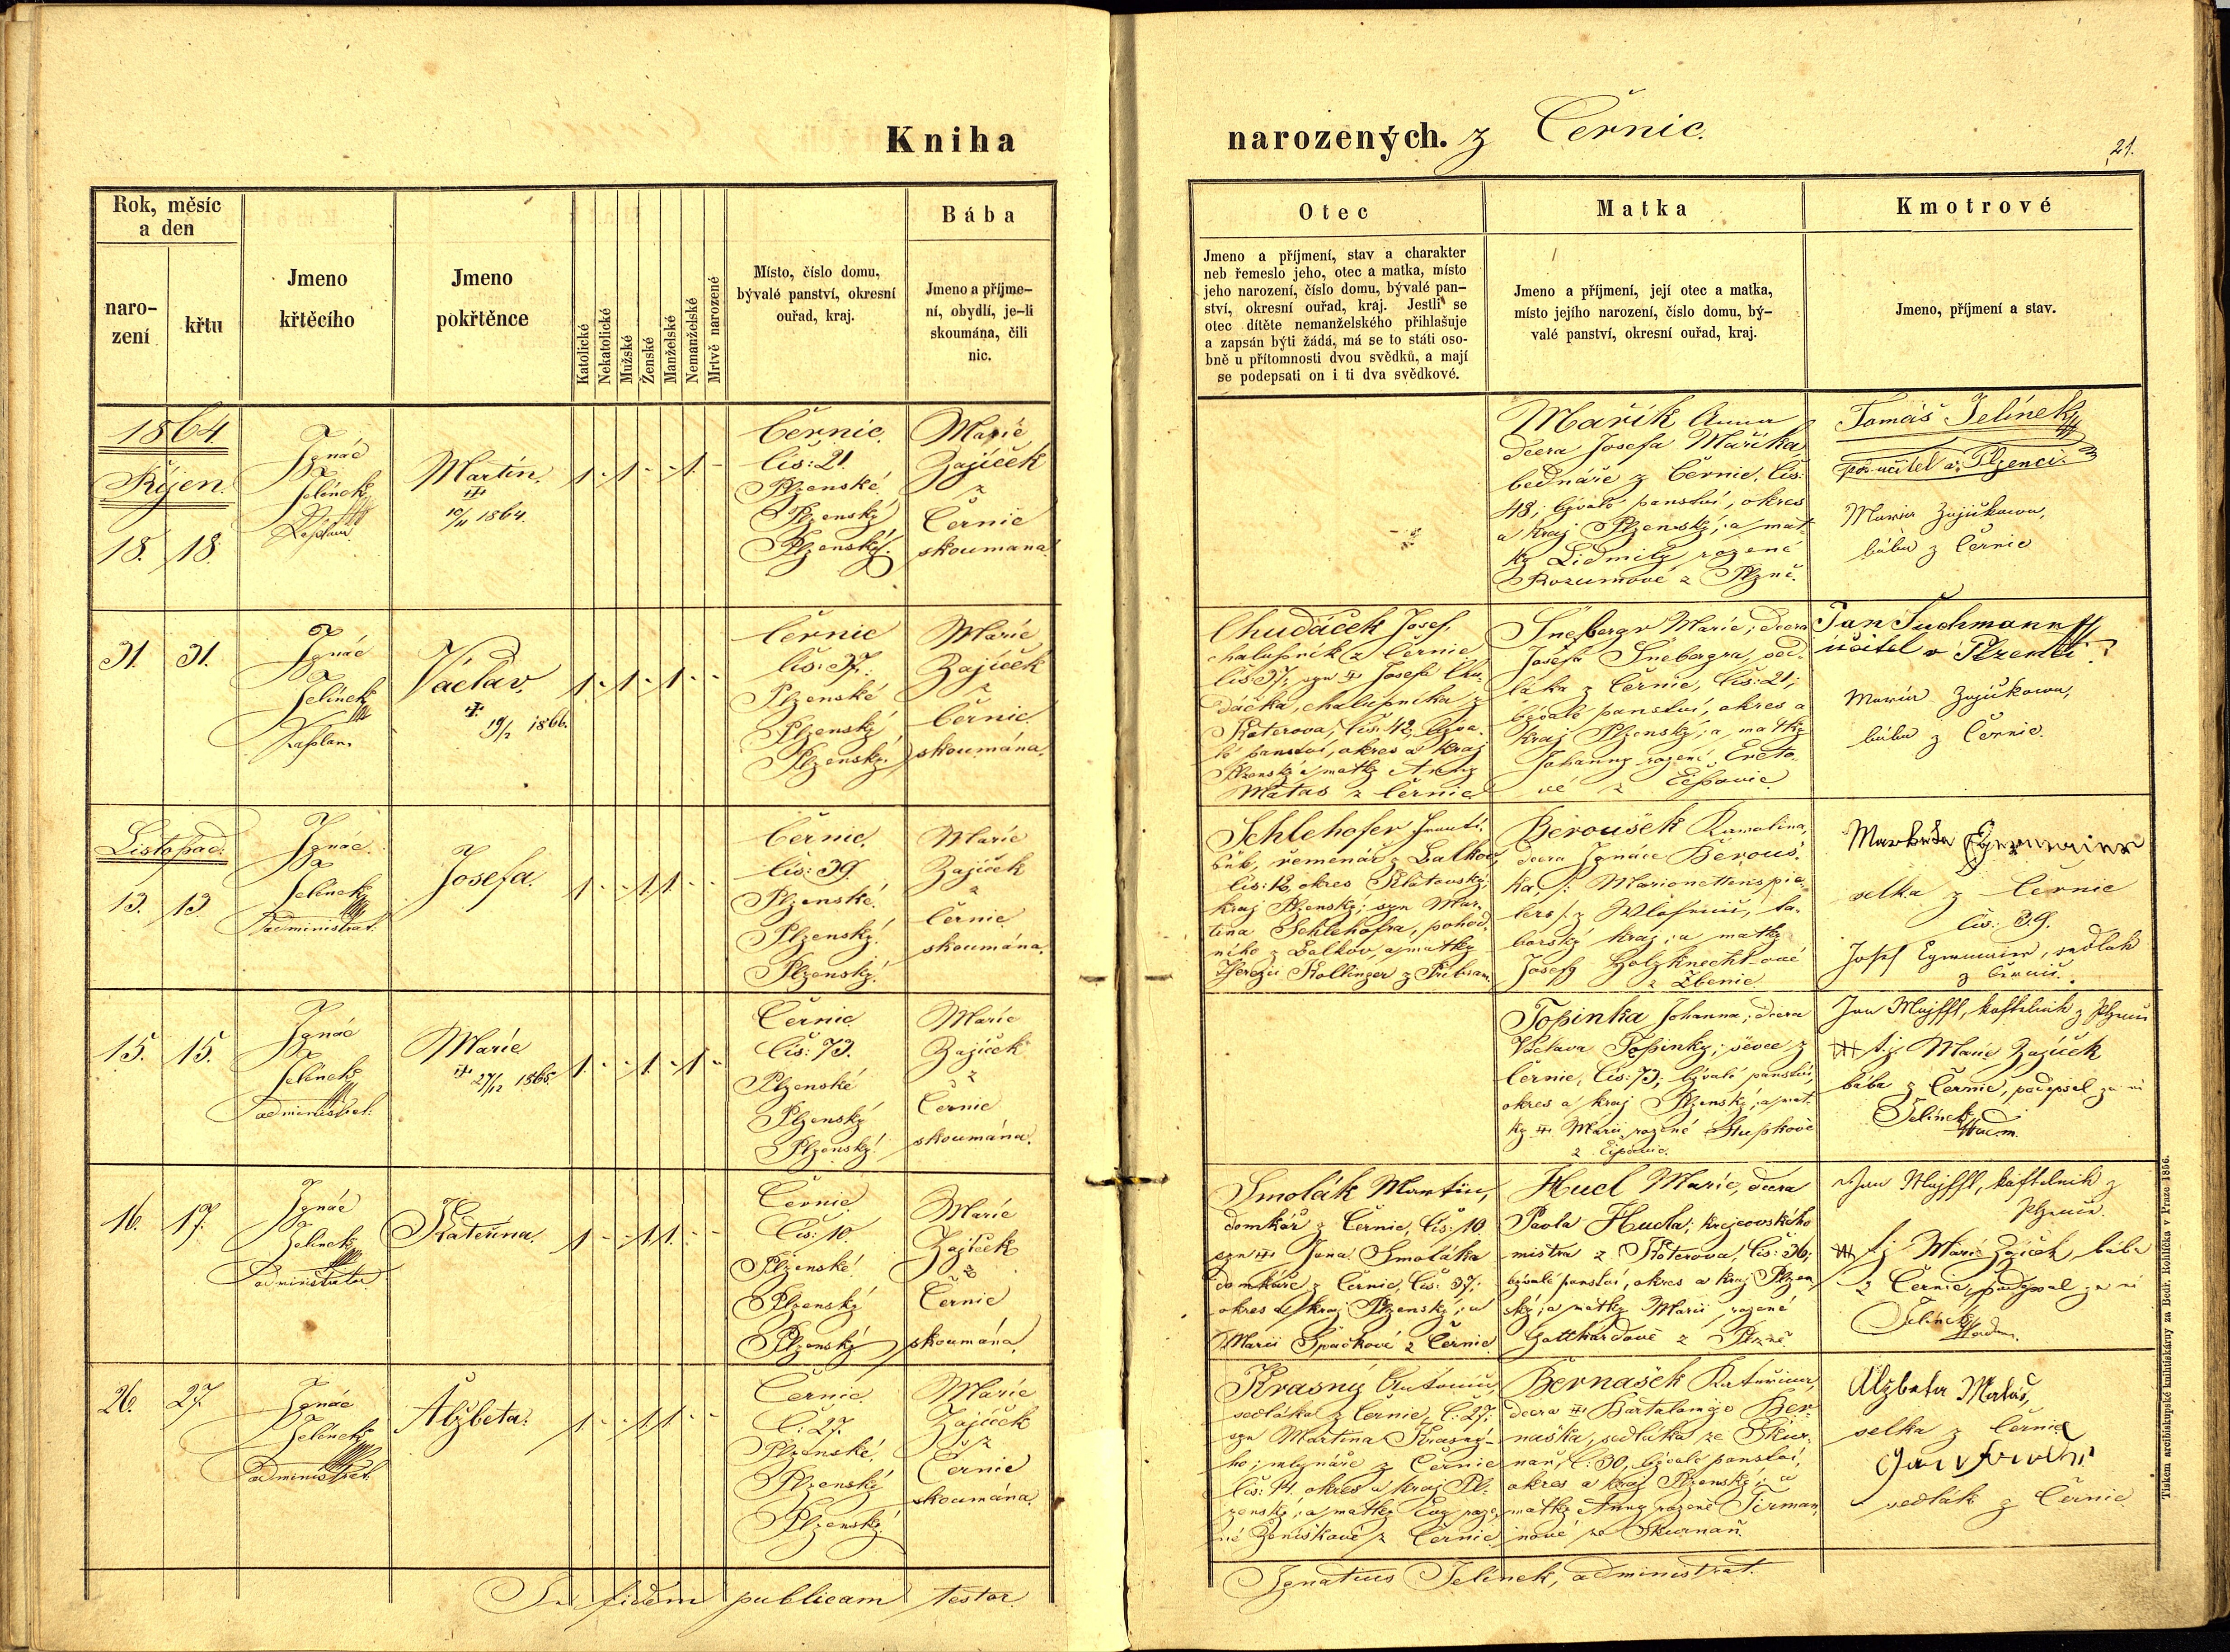 Kniha
narozených. z Černic.
21.
Rok, měsíc
a den
naro-
zení
křtu
Jmeno
křtěcího
Jmeno
pokřtěnce
Katolické
Nekatolické
Mužské
Ženské
Manželské
Nemanželské
Mrtvě narozené
Místo, číslo domu,
bývalé panství, okresní
ouřad, kraj.
Bába
Jmeno a příjme-
ní, obydlí, je-li
skoumána, čili
nic.
Otec
Jmeno a příjmení, stav a charakter
neb řemeslo jeho, otec a matka, místo
jeho narození, číslo domu, bývalé pan-
ství, okresní ouřad, kraj. Jestli se
otec dítěte nemanželského přihlašuje
a zapsán býti žádá, má se to státi oso-
bně u přítomnosti dvou svědků, a mají
se podepsati on i ti dva svědkové.
Matka
Jmeno a příjmení, její otec a matka,
místo jejího narození, číslo domu, bý-
valé panství, okresní ouřad, kraj.
Kmotrové
Jmeno, příjmení a stav.
1864.
Říjen.
18. 18.
Ignác
Jelínek
Kaplan
Martin.
10/11 1864.
1 - 1 - - 1 -
Černic.
čis: 21.
Plzenské
Plzenský
Plzenský.
Marie
Zajíček
z
Černic
skoumaná
Mařík Anna
dcera Josefa Maříka,
bednáře z Černic, čis:
48, bývalé panství, okres
a kraj Plzenský; a mat-
ky Lidmily rozené
Rozumové z Plzně.
Tomáš Jelínek
učitel v Plzenci.
Maria Zajíčkowa,
bába z Černic
31. 31.
Ignác
Jelínek
Kaplan
Václav.
19/2 1866.
1 - 1 - 1 - -
Černic
čis: 37.
Plzenské
Plzenský
Plzenský.
Marie
Zajíček
z
Černic
skoumána.
Chudáček Josef,
chalupník z Černic
čis 37, syn Josefa Chu-
dáčka, chalupníka z
Koterova, čis: 42, býva-
lé panství, okres a kraj
Plzenský a matky Anny
Matas z Černic
Šnebergr Marie; dcera
Josefa Šnebergra, sed-
láka z Černic, čis: 21;
bývalé panství, okres a
kraj Plzenský; a matky
Johanny rozené
vé z
Jan Tuchmann
učitel v Plzenci
Maria Zajíčkowa,
bába z Černic.
Listopad.
13. 13.
Ignác
Jelínek
administrat.
Josefa.
1 - - 1 1 - -
Černic.
čis: 39.
Plzenské.
Plzenský.
Plzenský.
Marie
Zajíček
z
Černic
skoumána.
Schlehofer Franti-
šek, řemenář z Balkov,
čis: 12, okres Klatovský,
kraj Plzenský; syn Mar-
tina Schlehofra, pohod-
ného z Balkov, a matky
Terezie Kollinger z Příbram.
Beroušek Karolina,
dcera Ignáce Berouš-
ka /: Marionettenspie-
lers :/ z
borský kraj; a matky
Josefy Holzknechtové
z Zbenic
selka z Černic
čis: 39.
Josef Egermaier, sedlák
z Černic.
15. 15.
Ignác
Jelínek
administrat.
Marie
27/12 1865.
1 - - 1 - 1 -
Černic
čis: 73.
Plzenské
Plzenský
Plzenský.
Marie
Zajíček
z
Černic
skoumána.
Topinka Johanna; dcera
Václava Topinky; ševce z
Černic, čis: 73; bývalé panství,
okres a kraj Plzenský; a mat-
ky Marii rozené
z
Jan Majfft, kostelník z Plzence
t.j. Marie Zajíček
bába z Černic, podepsal za ni
Jelínek
adm.
16. 17.
Ignác
Jelínek
administrator
Kateřina.
1 - - 1 1 - -
Černic
čis: 10.
Plzenské
Plzenský
Plzenský
Marie
Zajíček
z
Černic
skoumána.
Smolák Martin,
domkář z Černic, čis: 10
syn Jana Smoláka
domkáře z Černic, čis: 37;
okres a kraj Plzenský; a
Marii Špačkové z Černic.
Hucl Marie, dcera
Pavla Hucla; krejcovského
mistra z Koterova, čis: 36;
bývalé panství, okres a kraj Plzen
ský; a matky Marii rozené
Gotthardové z Plzně
Jan Majfft, kostelník z
Plzence.
t.j. Marie Zajíček bába
z Černic, podepsal za ni
Jelínek
adm.
26. 27.
Ignác
Jelínek
administrat.
Alžbeta.
1 - - 1 1 - -
Černic
č: 27.
Plzenské.
Plzenský
Plzenský.
Marie
Zajíček
z
Černic
skoumána.
Krasný Antonín,
sedláka z Černic, č: 27;
syn Martina Krasné-
ho; mlynáře z Černic
čis: 14, okres a kraj Pl-
zenský; a matky Evy roze-
né Zeníškové z Černic
Bernašek Kateřina,
dcera Bartoloměje Ber-
naška, sedláka ze Skur-
ňan, č: 30, bývalé panství,
okres a kraj Plzenský; a
matky Anny rozené Tirman
nové ze Skurnaň
Alžbeta Mataš,
selka z Černic
sedlák z Černic.
In fidem publicam testor.
Ignatius Jelínek, administrat.
Tiskem arcibiskupské knihtiskárny za Bedř. Rohlíčka v Praze 1856.